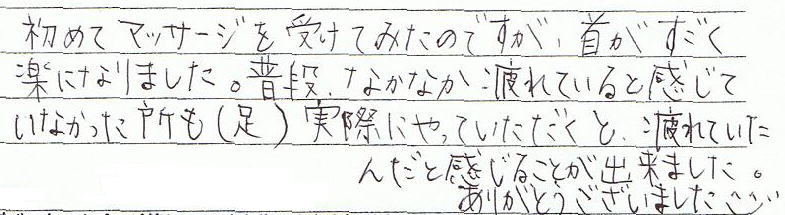 初めてマッサージを受けてみたのですが、首がすごく
楽になりました。普段、なかなか疲れていると感じて
いなかった所も(足)実際にやっていただくと、疲れていた
んだと感じることが出来ました。
ありがとうございました